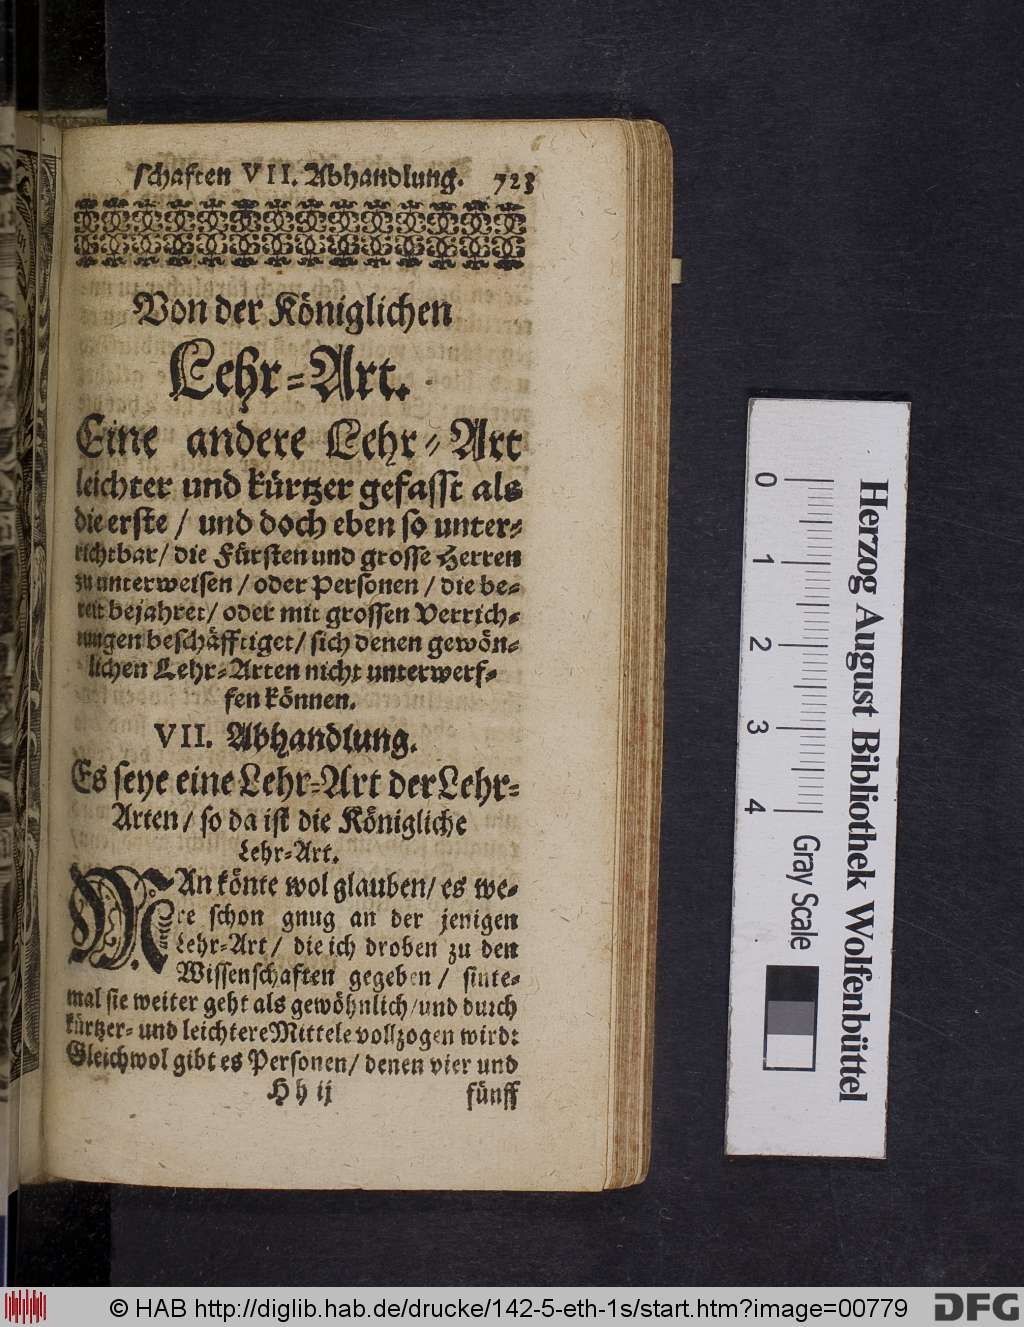 schafften VII. Abhandlung. 723
Von der Königlichen
Lehr-Art.
Eine andere Lehr-Art
leichter und kürtzer gefasst als
die erste / und doch eben so unter-
richtbar / die Fürsten und grosse Herren
zu unterweisen / oder Personen / die be-
reit bejahret / oder mit grossen Verrich-
tungen beschäfftiget / sich denen gewön-
lichen Lehr-Arten nicht unterwerf-
fen können.
VII. Abhandlung.
Es seye eine Lehr-Art der Lehr-
Arten / so da ist die Königliche
Lehr-Art.
MAn könte wol glauben / es we-
re schon gnug an der jenigen
Lehr-Art / die ich droben zu den
Wissenschaften gegeben / sinte-
mal sie weiter geht als gewöhnlich / und durch
kürtzer- und leichtere Mittele vollzogen wird:
Gleichwol gibt es Personen / denen vier und
Hh ij fünff
0 1 2 3 4 Gray Scale
Herzog August Bibliothek Wolfenbüttel
© HAB http://diglib.hab.de/drucke/142-5-eth-1s/start.htm?image=00779 DFG